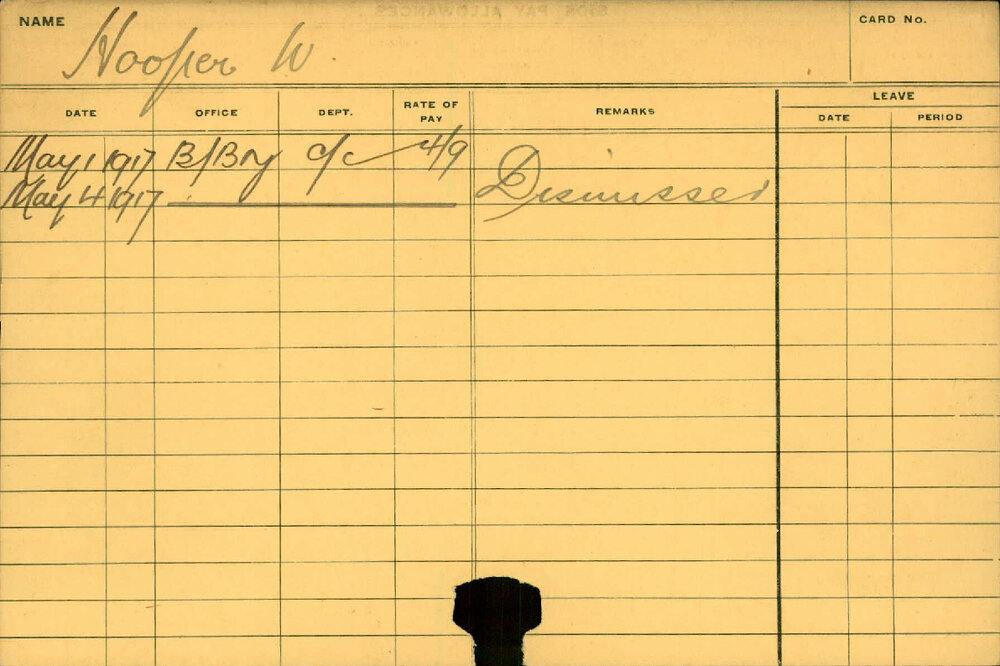 SICK PAY ALLOWANCES
NAME Hooper W. CARD No.
DATE OFFICE DEPT. RATE OF PAY REMARKS LEAVE
DATE PERIOD
May 1 1917 B/Bry c/c 4/9
May 4 1917 Dismissed